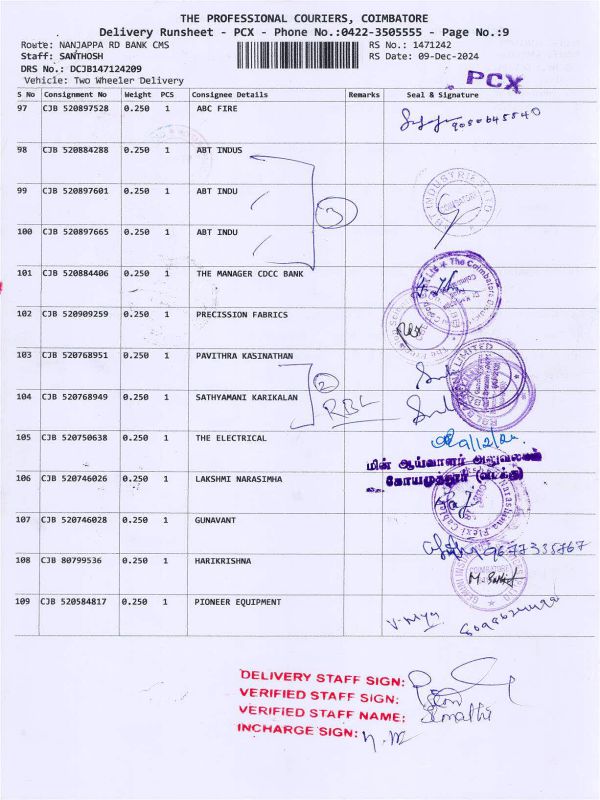 THE PROFESSIONAL COURIERS, COIMBATORE
Delivery Runsheet - PCX - Phone No.:0422-3505555 - Page No.:9
Route: NANJAPPA RD BANK CMS
RS No.: 1471242
Staff: SANTHOSH
RS Date: 09-Dec-2024
DRS No.: DCJB147124209
PCX
Vehicle: Two Wheeler Delivery
S No Consignment No Weight PCS Consignee Details Remarks Seal & Signature
97 CJB 520897528 0.250 1 ABC FIRE
98 CJB 520884288 0.250 1 ABT INDUS
99 CJB 520897601 0.250 1 ABT INDU
3
100 CJB 520897665 0.250 1 ABT INDU
101 CJB 520884406 0.250 1 THE MANAGER CDCC BANK
102 CJB 520909259 0.250 1 PRECISSION FABRICS
103 CJB 520768951 0.250 1 PAVITHRA KASINATHAN
2
104 CJB 520768949 0.250 1 SATHYAMANI KARIKALAN
RBL
105 CJB 520750638 0.250 1 THE ELECTRICAL
மின் ஆய்வாளர் அலுவலகம்
106 CJB 520746026 0.250 1 LAKSHMI NARASIMHA
கோயமுத்தூர் (வடக்கு)
107 CJB 520746028 0.250 1 GUNAVANT
9677335767
108 CJB 80799536 0.250 1 HARIKRISHNA
109 CJB 520584817 0.250 1 PIONEER EQUIPMENT
DELIVERY STAFF SIGN:
VERIFIED STAFF SIGN:
VERIFIED STAFF NAME:
INCHARGE SIGN: